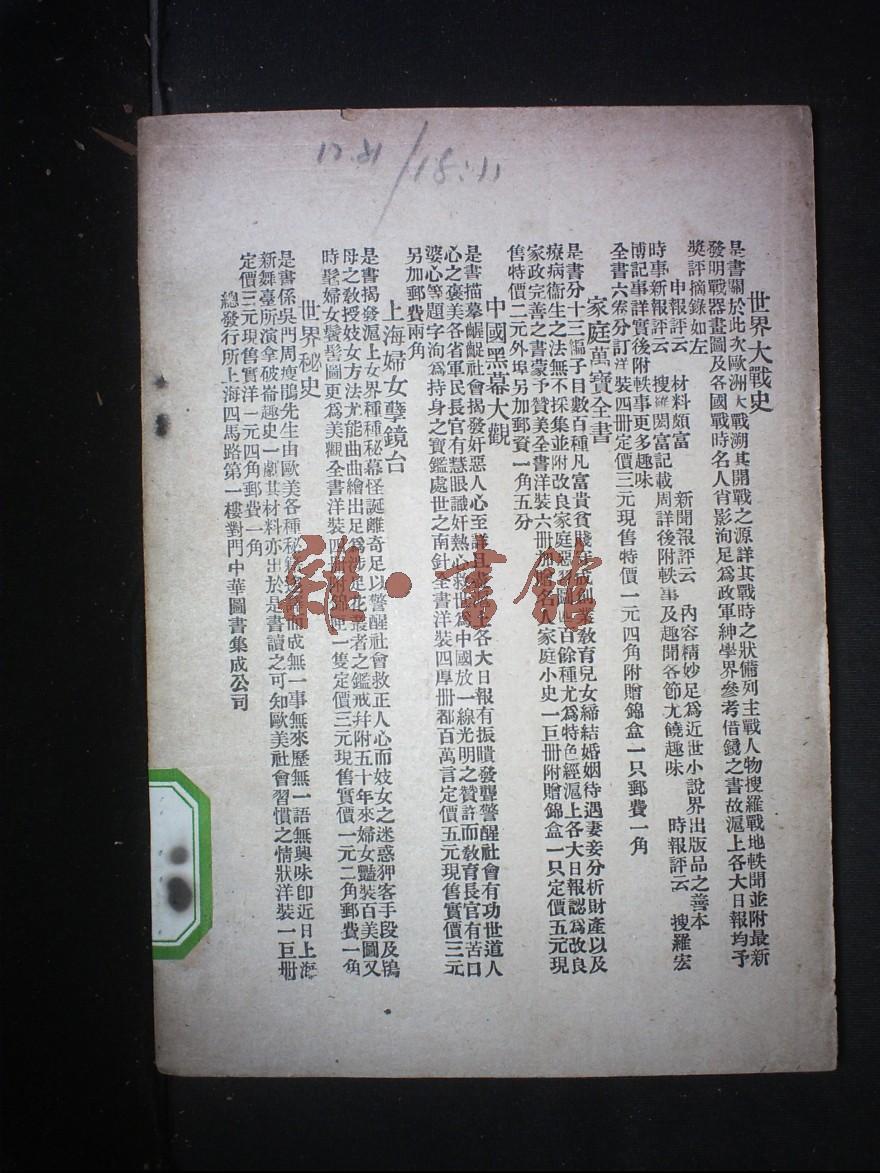 世界大戰史
是書關於此次歐洲大戰溯其開戰之源詳其戰時之狀備列主戰人物搜羅戰地軼聞並附最新
發明戰器畫圖及各國戰時名人肖影洵足爲政軍紳學界參考借鏡之書故滬上各大日報均予
獎評摘錄如左
申報評云 材料頗富 新聞報評云 內容精妙足爲近世小說界出版品之善本 時報評云 搜羅宏
時事新報評云 搜羅閎富記載周詳後附軼事及趣聞各節尤饒趣味
博記事詳實後附軼事更多趣味
全書六卷分訂洋裝四冊定價三元現售特價一元四角附贈錦盒一只郵費一角
家庭萬寶全書
是書分十三編子目數百種凡富貴貧賤 創業教育兒女締結婚姻待遇妻妾分析財產以及
療病衞生之法無不採集並附改良家庭惡習圖 百餘種尤爲特色經滬上各大日報認爲改良
家政完善之書蒙予贊美全書洋裝六冊 名人家庭小史一巨冊附贈錦盒一只定價五元現
售特價二元外埠另加郵資一角五分
中國黑幕大觀
是書描摹齷齪社會揭發奸惡人心至詳且 上各大日報有振聵發聾警醒社會有功世道人
心之褒美各省軍民長官有慧眼識奸熱心救世爲中國放一線光明之贊許而教育長官有苦口
婆心等題字洵爲持身之寶鑑處世之南針全書洋裝四厚冊都百萬言定價五元現售實價三元
另加郵費兩角
上海婦女孽鏡台
是書揭發滬上女界種種秘幕怪誕離奇足以警醒社會救正人心而妓女之迷惑狎客手段及鴇
母之教授妓女方法尤能曲曲繪出足爲涉足花叢者之鑑戒幷附五十年來婦女豔裝百美圖又
時髦婦女鬢髻圖更爲美觀全書洋裝四冊附錦匣一隻定價三元現售實價一元二角郵費一角
世界秘史
是書係吳門周瘦鵑先生由歐美各種秘 而成無一事無來歷無一語無興味卽近日上海
新舞臺所演拿破崙趣史一劇其材料亦出於是書讀之可知歐美社會習慣之情狀洋裝一巨冊
定價三元現售實洋一元四角郵費一角
總發行所上海四馬路第一樓對門中華圖書集成公司
18:11
雜·書館